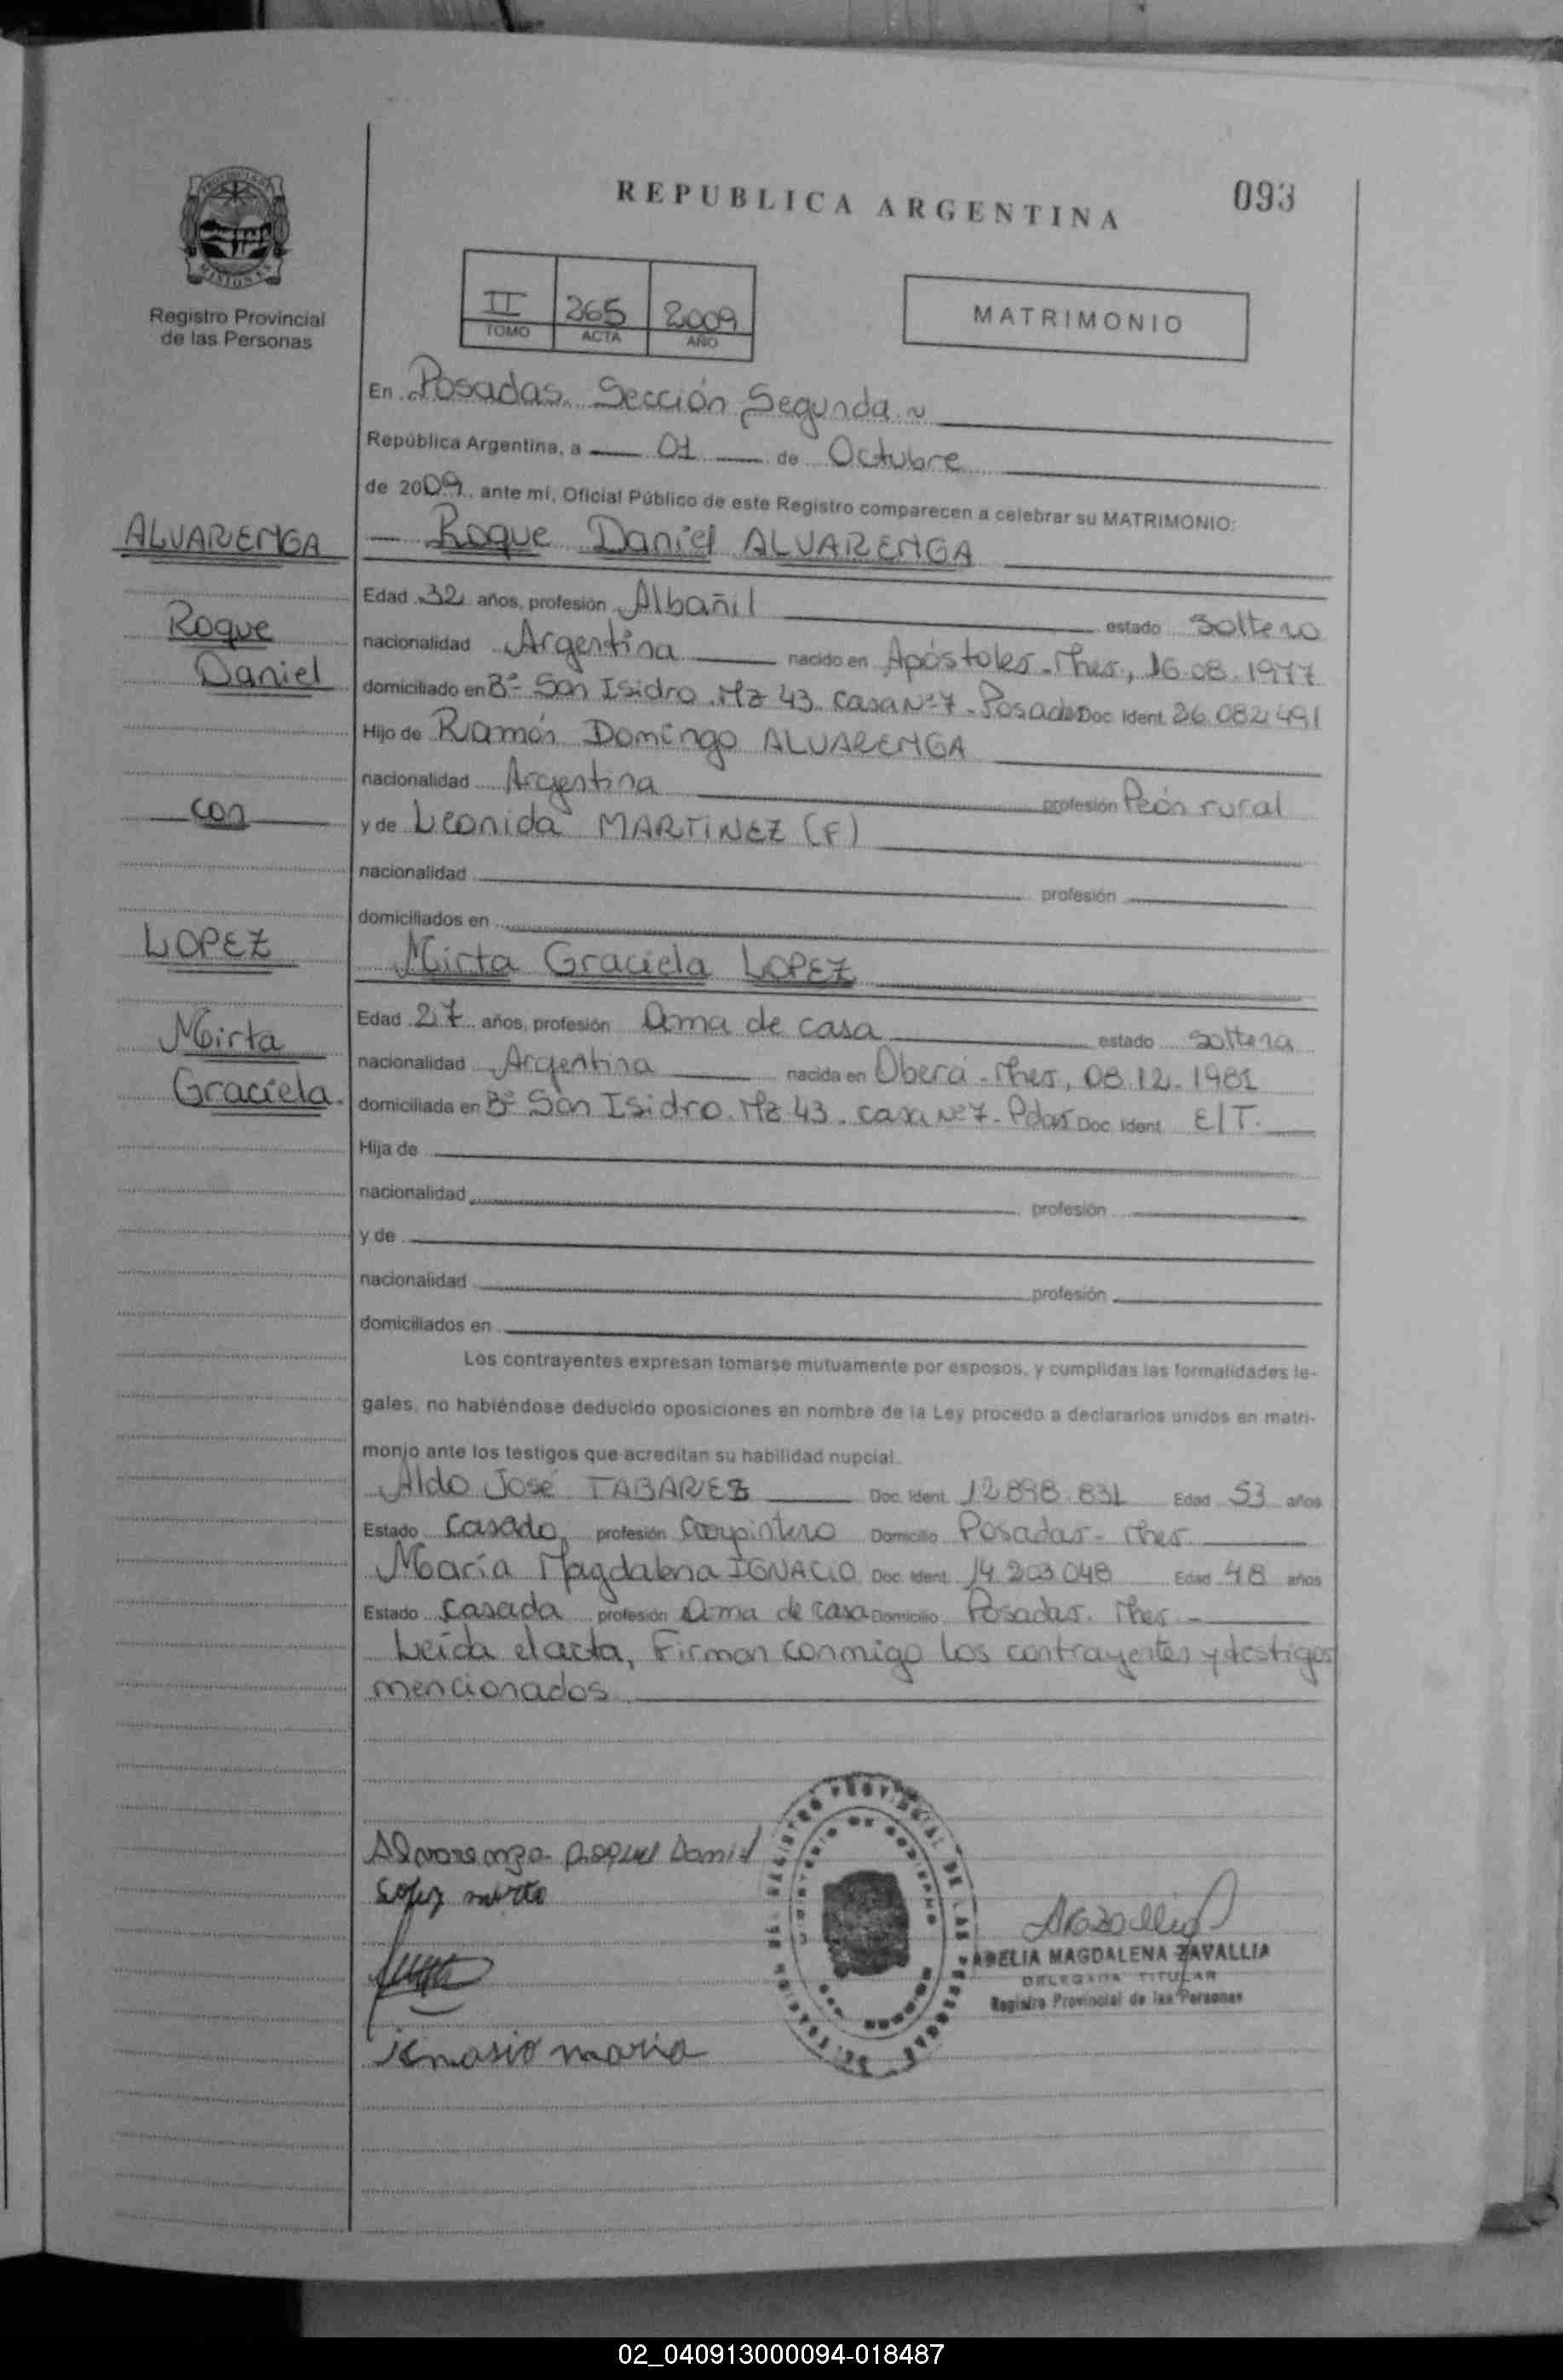 093
REPUBLICA ARGENTINA
MISIONES
Registro Provincial
de las Personas
II 265 2009
TOMO ACTA AÑO
MATRIMONIO
En Posadas. Sección Segunda ~
República Argentina, a 01 de Octubre
de 2009, ante mi, Oficial Público de este Registro comparecen a celebrar su MATRIMONIO:
ALVARENGA
Roque Daniel ALVARENGA
Edad 32 años, profesión Albañil estado soltero
Roque
nacionalidad Argentina nacido en Apóstoles-Mnes, 16.08.1977
Daniel
domiciliado en Bº San Isidro. Mz 43. casa Nº 7 - Posadas Doc. Ident. 26.082.491
Hijo de Ramón Domingo ALVARENGA
nacionalidad Argentina profesión Peón rural
con
y de Leonida MARTINEZ (F)
nacionalidad profesión
domiciliados en
LOPEZ
Mirta Graciela LOPEZ
Edad 27 años, profesión Ama de casa estado soltera
Mirta
nacionalidad Argentina nacida en Oberá-Mnes, 08.12.1981
Graciela.
domiciliada en Bº San Isidro. Mz 43. casa Nº 7 - Pdas Doc. Ident. E/T.
Hija de
nacionalidad profesión
y de
nacionalidad profesión
domiciliados en
Los contrayentes expresan tomarse mutuamente por esposos, y cumplidas las formalidades le-
gales, no habiéndose deducido oposiciones en nombre de la Ley procedo a declararlos unidos en matri-
monio ante los testigos que acreditan su habilidad nupcial.
Aldo José TABAREZ Doc. Ident. 12.898.831 Edad 53 años
Estado Casado, profesión Carpintero Domicilio Posadas - Mnes
María Magdalena IGNACIO Doc. Ident. 14.203.048 Edad 48 años
Estado Casada profesión Ama de casa Domicilio Posadas. Mnes.-
Leída el acta, Firman conmigo los contrayentes y testigos
mencionados
Alvarenga Roque Daniel
Lopez mirta
ADELIA MAGDALENA ZAVALLIA
DELEGADA TITULAR
Registro Provincial de las Personas
ignasio maria
02_040913000094-018487